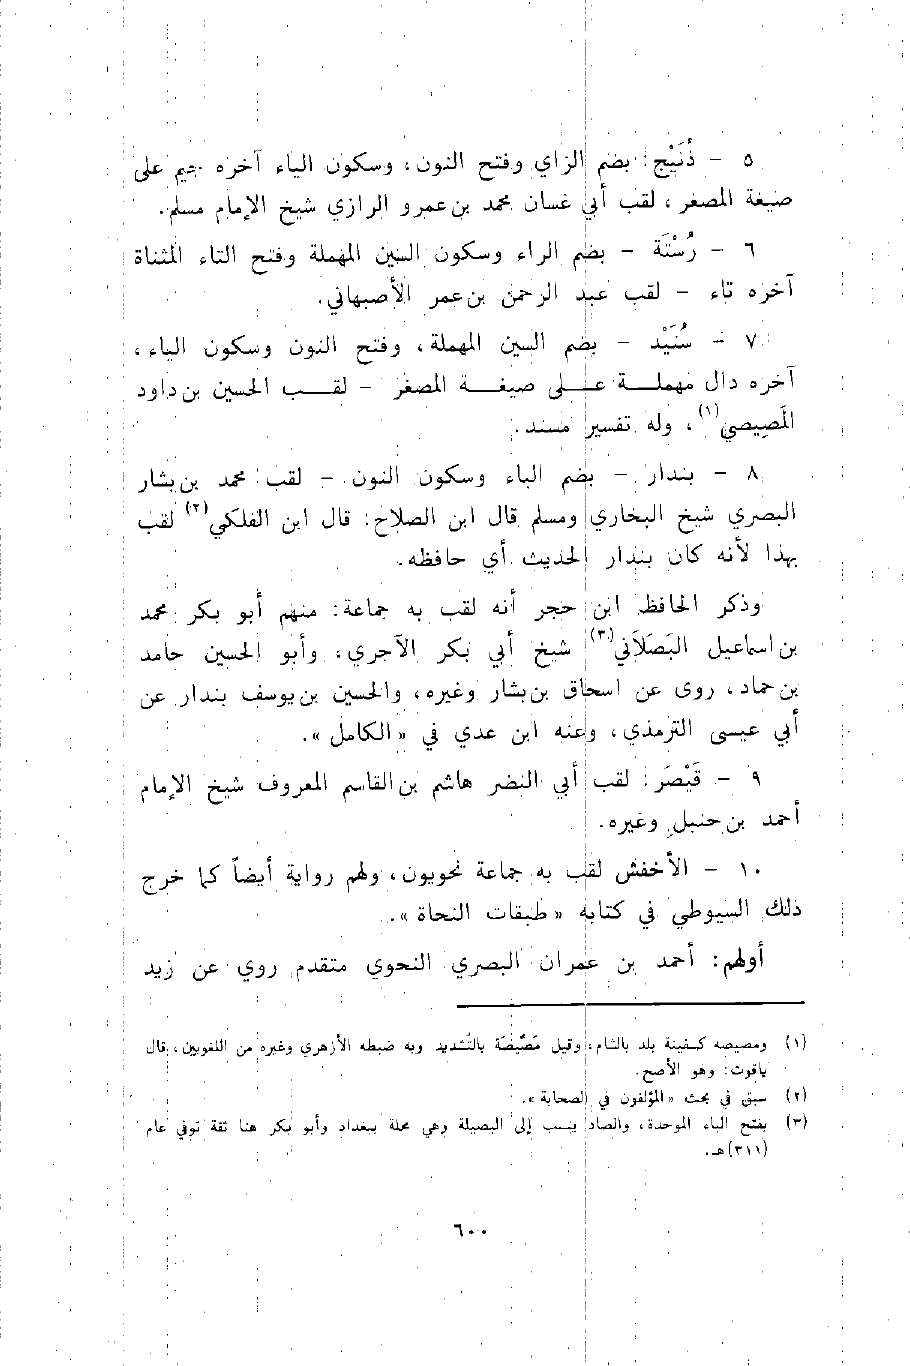 ٥ - زُنَيْج: بضم الزاي وفتح النون، وسكون الياء آخره جيم على
صيغة المصغر، لقب أبي غسان محمد بن عمرو الرازي شيخ الإمام مسلم.
٦ - رُسْتَة - بضم الراء وسكون السين المهملة وفتح التاء المثناة
آخره تاء - لقب عبد الرحمن بن عمر الأصبهاني.
٧ - سُنَيْد - بضم السين المهملة، وفتح النون وسكون الياء،
آخره دال مهملة على صيغة المصغر - لقب الحسين بن داود
المَصِيصي(١)، وله تفسير مسند.
٨ - بندار - بضم الباء وسكون النون - لقب محمد بن بشار
البصري شيخ البخاري ومسلم قال ابن الصلاح: قال ابن الفلكي(٢) لقب
بهذا لأنه كان بندار الحديث أي حافظه.
وذكر الحافظ ابن حجر أنه لقب به جماعة: منهم أبو بكر محمد
بن اسماعيل البَصَلَاني(٣) شيخ أبي بكر الآجري، وأبو الحسين حامد
بن حماد، روى عن اسحاق بن بشار وغيره، والحسين بن يوسف بندار عن
أبي عيسى الترمذي، وعنه ابن عدي في «الكامل».
٩ - قَيْصَر: لقب أبي النضر هاشم بن القاسم المعروف شيخ الإمام
أحمد بن حنبل وغيره.
١٠ - الأخفش لقب به جماعة نحويون، ولهم رواية أيضاً كما خرج
ذلك السيوطي في كتابه «طبقات النحاة».
أولهم: أحمد بن عمران البصري النحوي متقدم روي عن زيد
(١) ومصيصه كسفينة بلد بالشام، وقيل مَصِّيصَة بالتشديد وبه ضبطه الأزهري وغيره من اللغويين، قال
ياقوت: وهو الأصح.
(٢) سبق في بحث «المؤلفون في الصحابة».
(٣) بفتح الباء الموحدة، والصاد ينسب إلى البصيلة وهي محلة ببغداد وأبو بكر هنا ثقة توفي عام
(٣١١)هـ.
٦٠٠